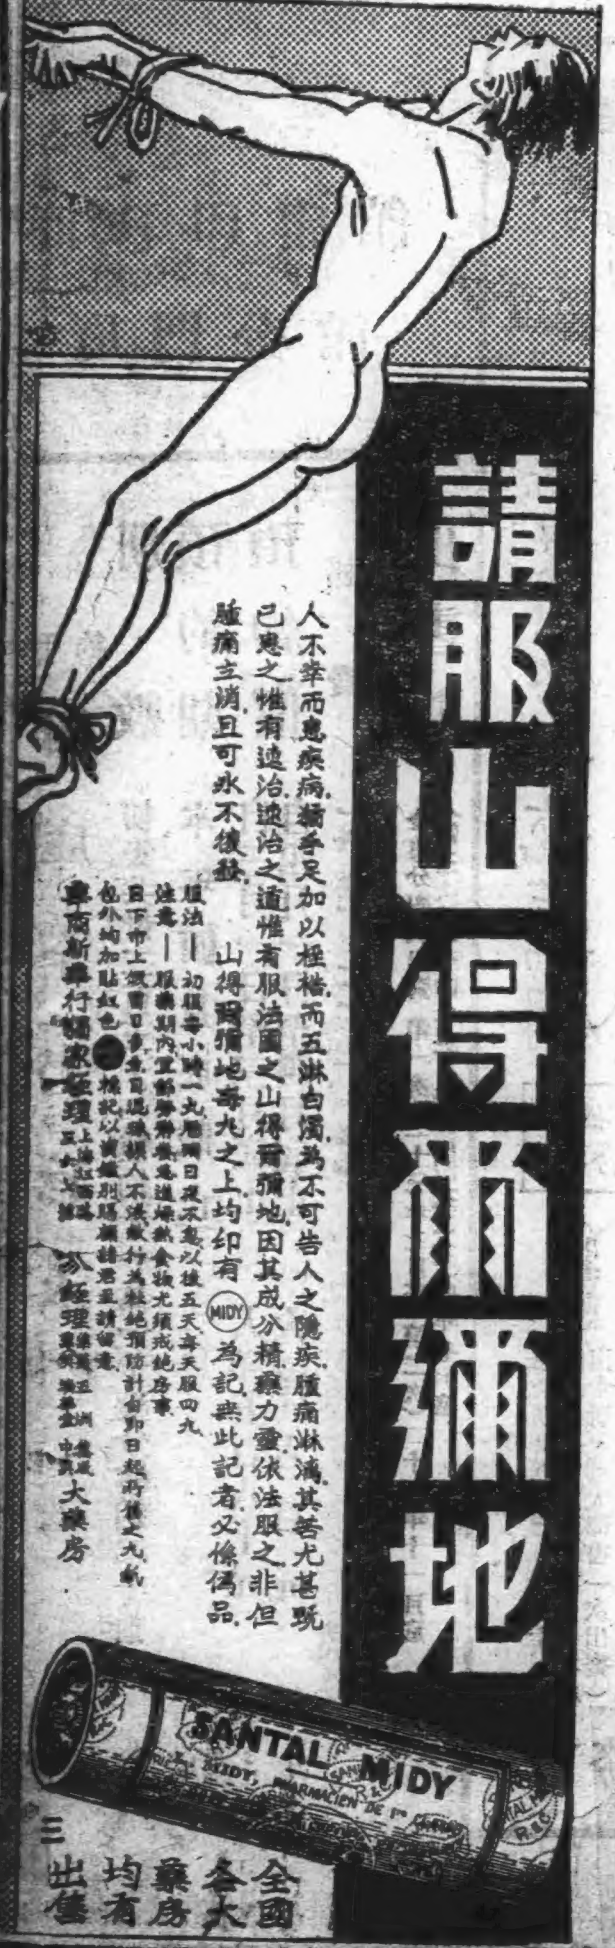 請服山得爾彌地
人不幸而患疾病，猶手足加以桎梏，而五淋白濁，為不可告人之隱疾，腫痛淋漓，其苦尤甚，既
已患之，惟有速治，速治之道，惟有服法國之山得爾彌地，因其成分精，藥力靈，依法服之，非但
腫痛立消，且可永不復發。 山得爾彌地每丸之上均印有 MIDY 為記，無此記者，必係偽品。
服法—初服每小時一丸 日夜不 以後五天每天服四丸
注意—服藥期內宜節勞 燥熱食物尤須戒絕房事
目下市上假冒日多 人不 行為杜絕預防計自即日起所售之丸紙
包外均加貼紅色 標記以資識別賜顧諸君並請留意
商新 行獨家經理 上海江西路 分經理 五洲 中英 大藥房
SANTAL MIDY
MIDY, PHARMACIEN DE 1re
全國
各大
藥房
均有
出售
三